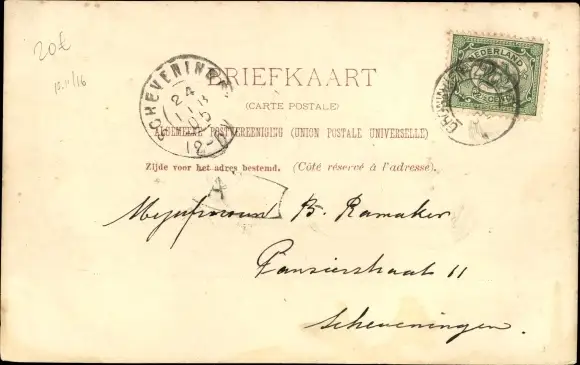 20€
NEDERLAND
SCHEVENINGEN
BRIEFKAART
24
(CARTE POSTALE)
ALGEMEENE POSTVEREENIGING (UNION POSTALE UNIVERSELLE)
Zijde voor het adres bestemd. (Côté réservé à l'adresse).
Mejufvrouw B. Ramaker
Pansierstraat 11
Scheveningen.